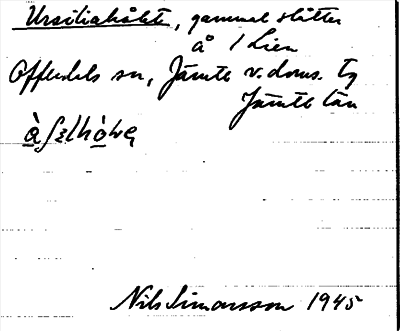 Ursiliahålet, gammal slåtter
å 1 Lien
Offerdals sn, Jämte v. doms. tg
Jämtl län
Nils Simonsson 1945